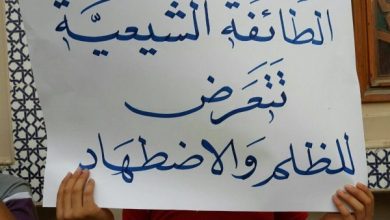 الطَّائفَة الشيعيَّة
تتَعَرض
للظلم وَالاضطهَاد